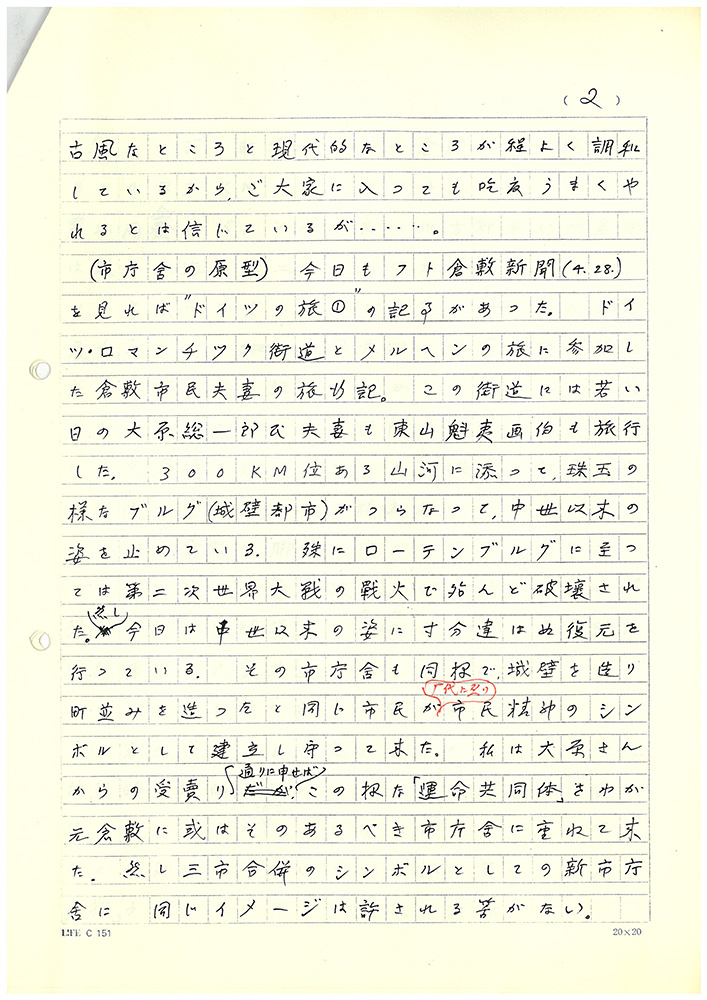 (2)
古風なところと現代的なところが程よく調和
しているから、ご大家に入っても吃度うまくや
れるとは信じているが・・・・・。
(市庁舎の原型) 今日もフト倉敷新聞(4.28.)
を見れば"ドイツの旅①"の記事があった。 ドイ
ツ・ロマンチック街道とメルヘンの旅に参加し
た倉敷市民夫妻の旅行記。 この街道には若い
日の大原総一郎氏夫妻も東山魁夷画伯も旅行
した。 300KM位ある山河に添って、珠玉の
様なブルグ(城壁都市)がつらなって、中世以来の
姿を止めている. 殊にローテンブルグに至っ
ては第二次世界大戦の戦火で殆んど破壊され
た。然し今日は中世以来の姿に寸分違はぬ復元を
行っている. その市庁舎も同様で、城壁を造り
町並みを造ったと同じ市民が代々に亙り市民精神のシン
ボルとして建立し守って来た。 私は大原さん
からの受賣り通りに申せばこの様な「運命共同体」をわが
元倉敷に或はそのあるべき市庁舎に重ねて来
た. 然し三市合併のシンボルとしての新市庁
舎に 同じイメージは許される筈がない。
LIFE C 151
20×20